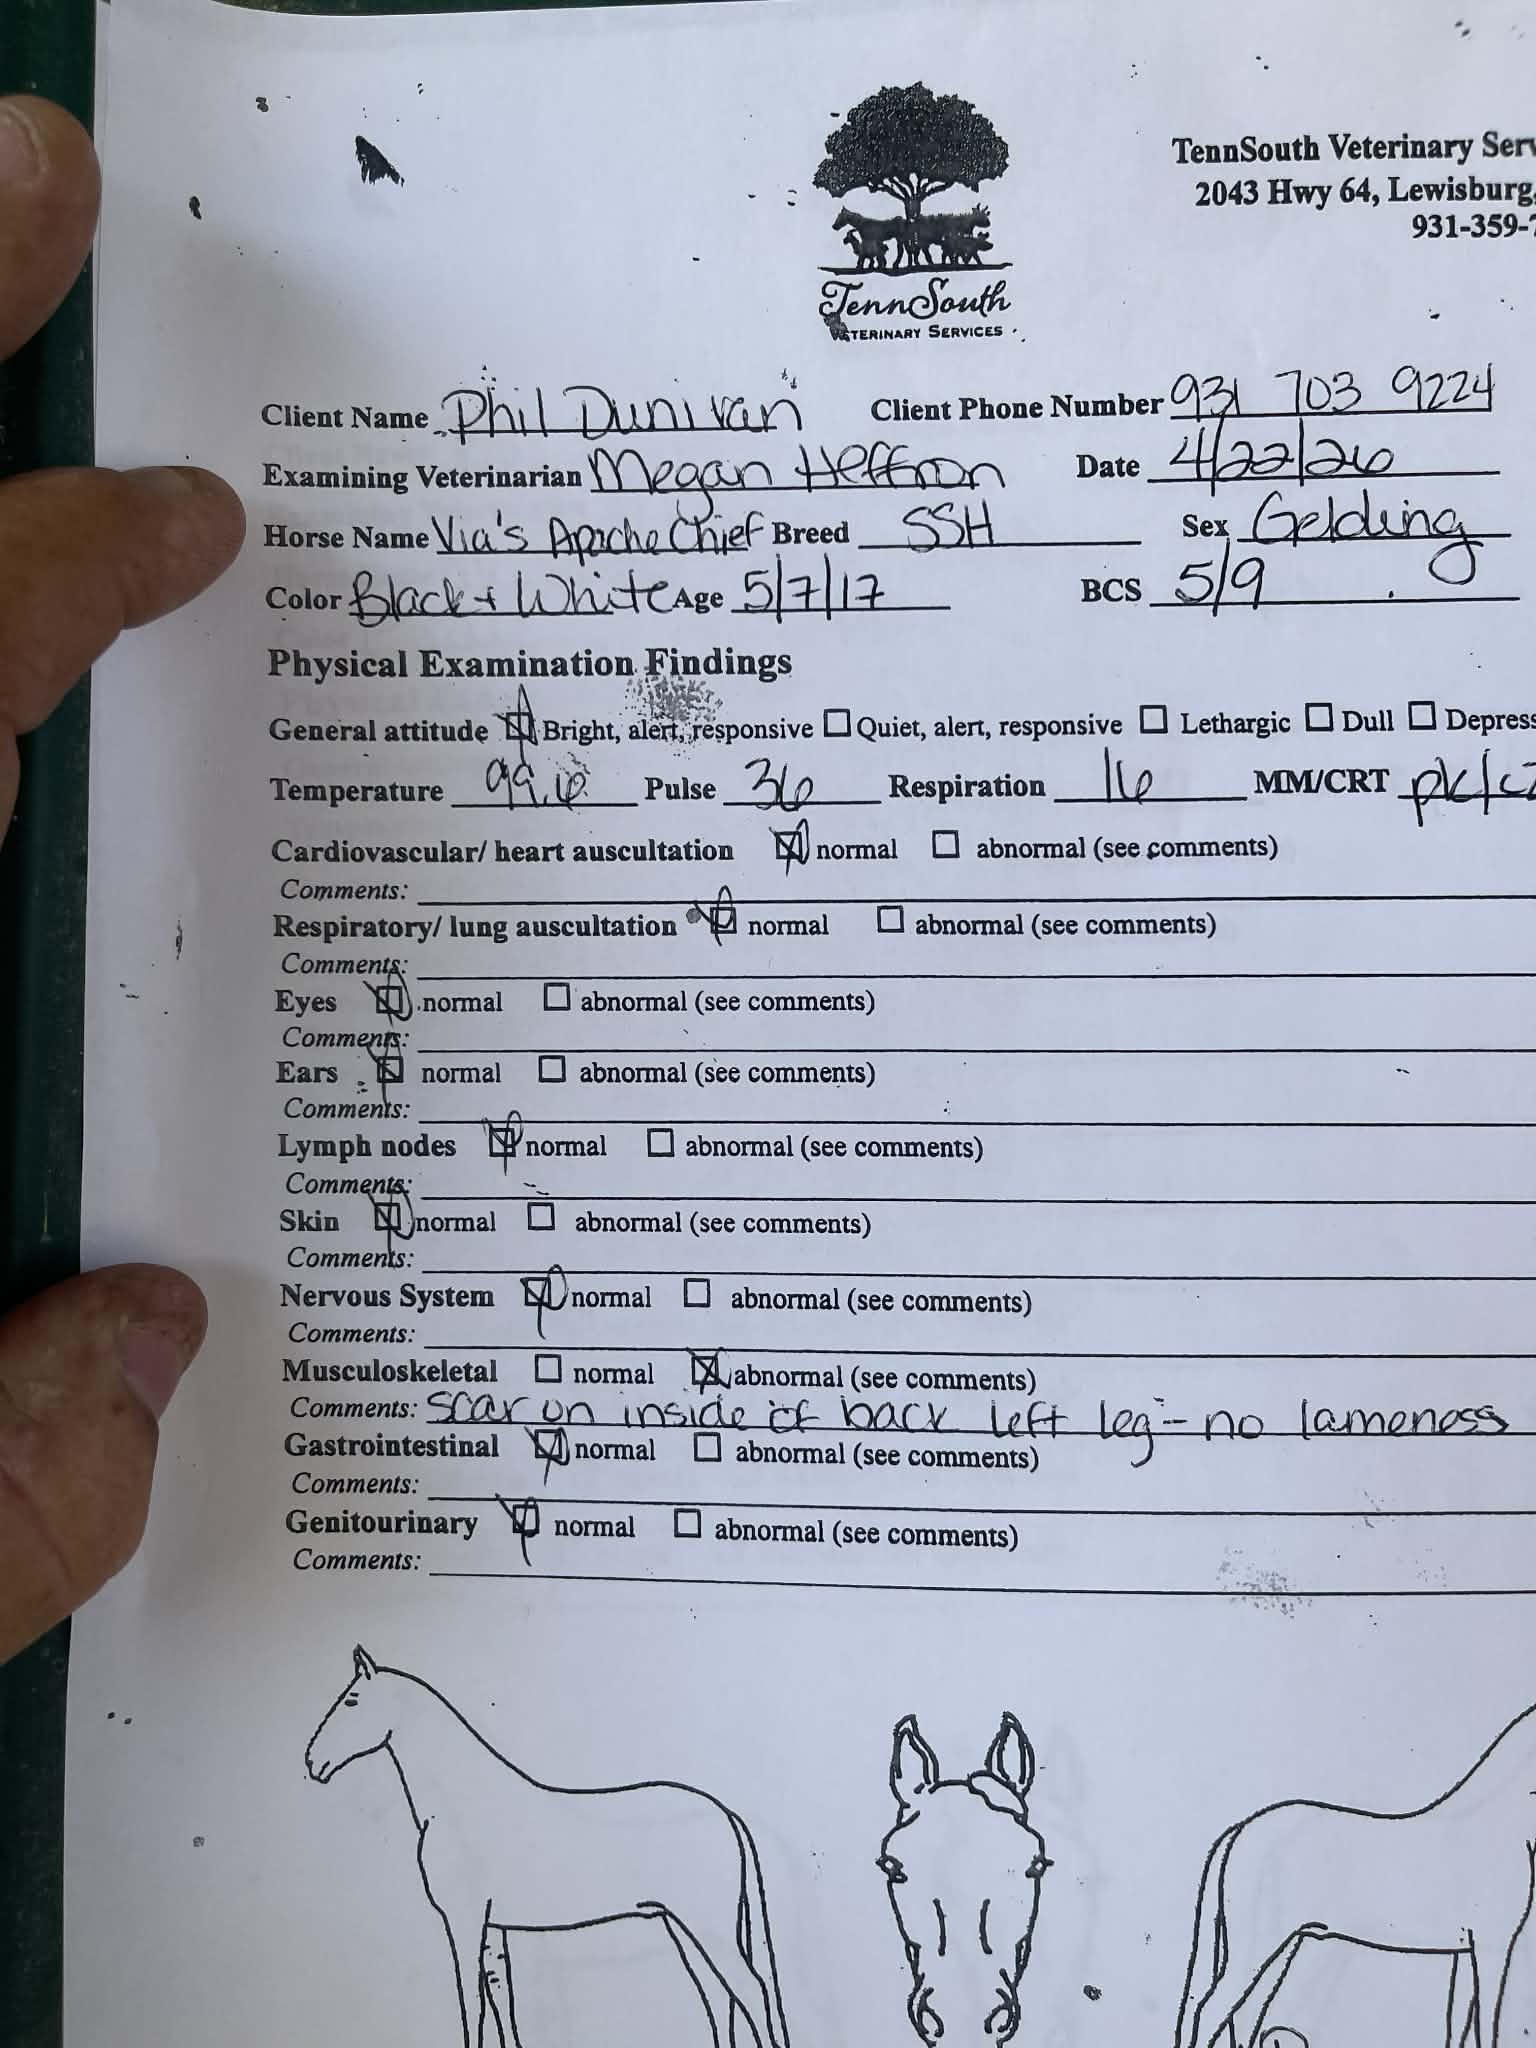 TennSouth Veterinary Serv
2043 Hwy 64, Lewisburg,
931-359-
TennSouth
VETERINARY SERVICES
Client Name Phil Dunivan Client Phone Number 931 703 9224
Examining Veterinarian Megan Heffron Date 4/22/26
Horse Name Via's Apache Chief Breed SSH Sex Gelding
Color Black + White Age 5/7/17 BCS 5/9
Physical Examination Findings
General attitude Bright, alert, responsive Quiet, alert, responsive Lethargic Dull Depress
Temperature 99.6 Pulse 36 Respiration 16 MM/CRT pk/<2
Cardiovascular/ heart auscultation normal abnormal (see comments)
Comments:
Respiratory/ lung auscultation normal abnormal (see comments)
Comments:
Eyes normal abnormal (see comments)
Comments:
Ears normal abnormal (see comments)
Comments:
Lymph nodes normal abnormal (see comments)
Comments:
Skin normal abnormal (see comments)
Comments:
Nervous System normal abnormal (see comments)
Comments:
Musculoskeletal normal abnormal (see comments)
Comments: scar on inside of back left leg - no lameness
Gastrointestinal normal abnormal (see comments)
Comments:
Genitourinary normal abnormal (see comments)
Comments: